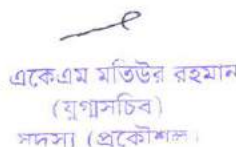 একেএম মতিউর রহমান
(যুগ্মসচিব)
সদস্য (প্রকৌশল)